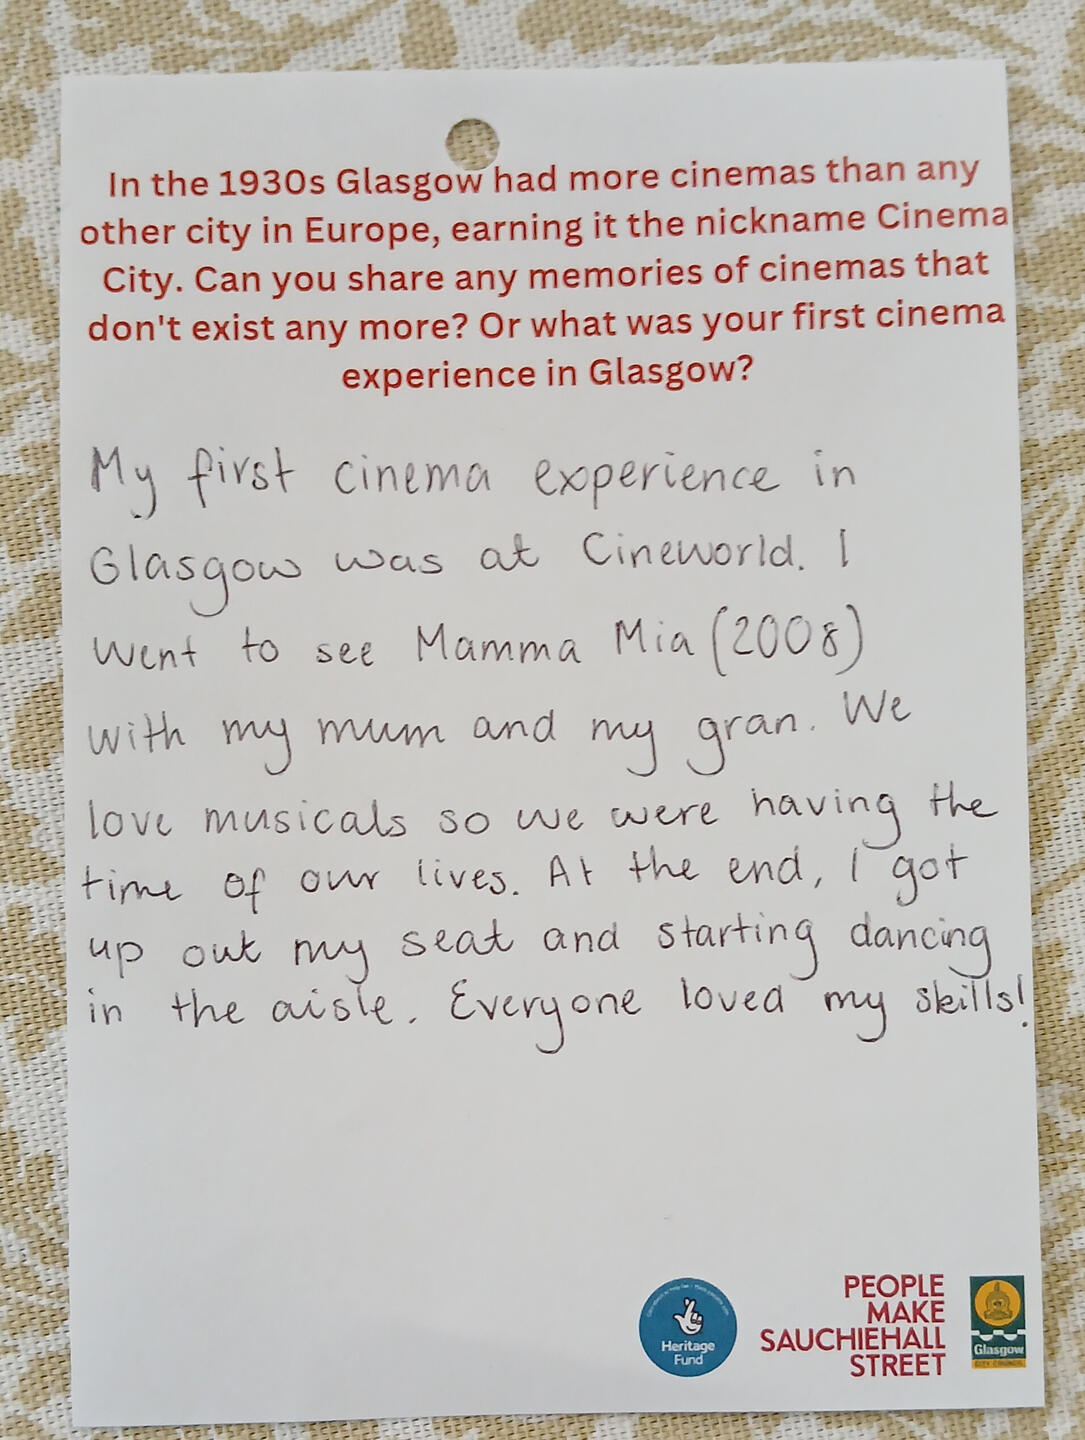 In the 1930s Glasgow had more cinemas than any
other city in Europe, earning it the nickname Cinema
City. Can you share any memories of cinemas that
don't exist any more? Or what was your first cinema
experience in Glasgow?
My first cinema experience in
Glasgow was at Cineworld. I
went to see Mamma Mia (2008)
with my mum and my gran. We
love musicals so we were having the
time of our lives. At the end, I got
up out my seat and starting dancing
in the aisle. Everyone loved my skills!
Heritage
Fund
PEOPLE
MAKE
SAUCHIEHALL
STREET
Glasgow
CITY COUNCIL